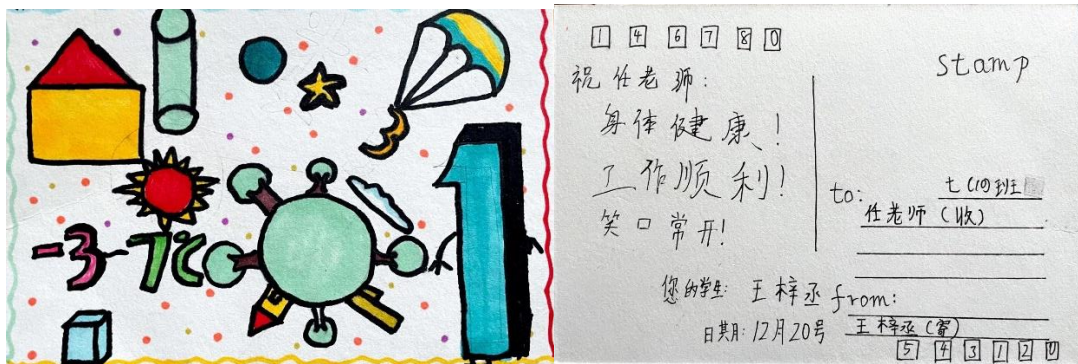 -3-7℃
1
146780
stamp
祝任老师：
身体健康！
工作顺利！
笑口常开！
to: 七(10)班
任老师（收）
您的学生：王梓丞
from:
日期：12月20号
王梓丞（寄）
543120